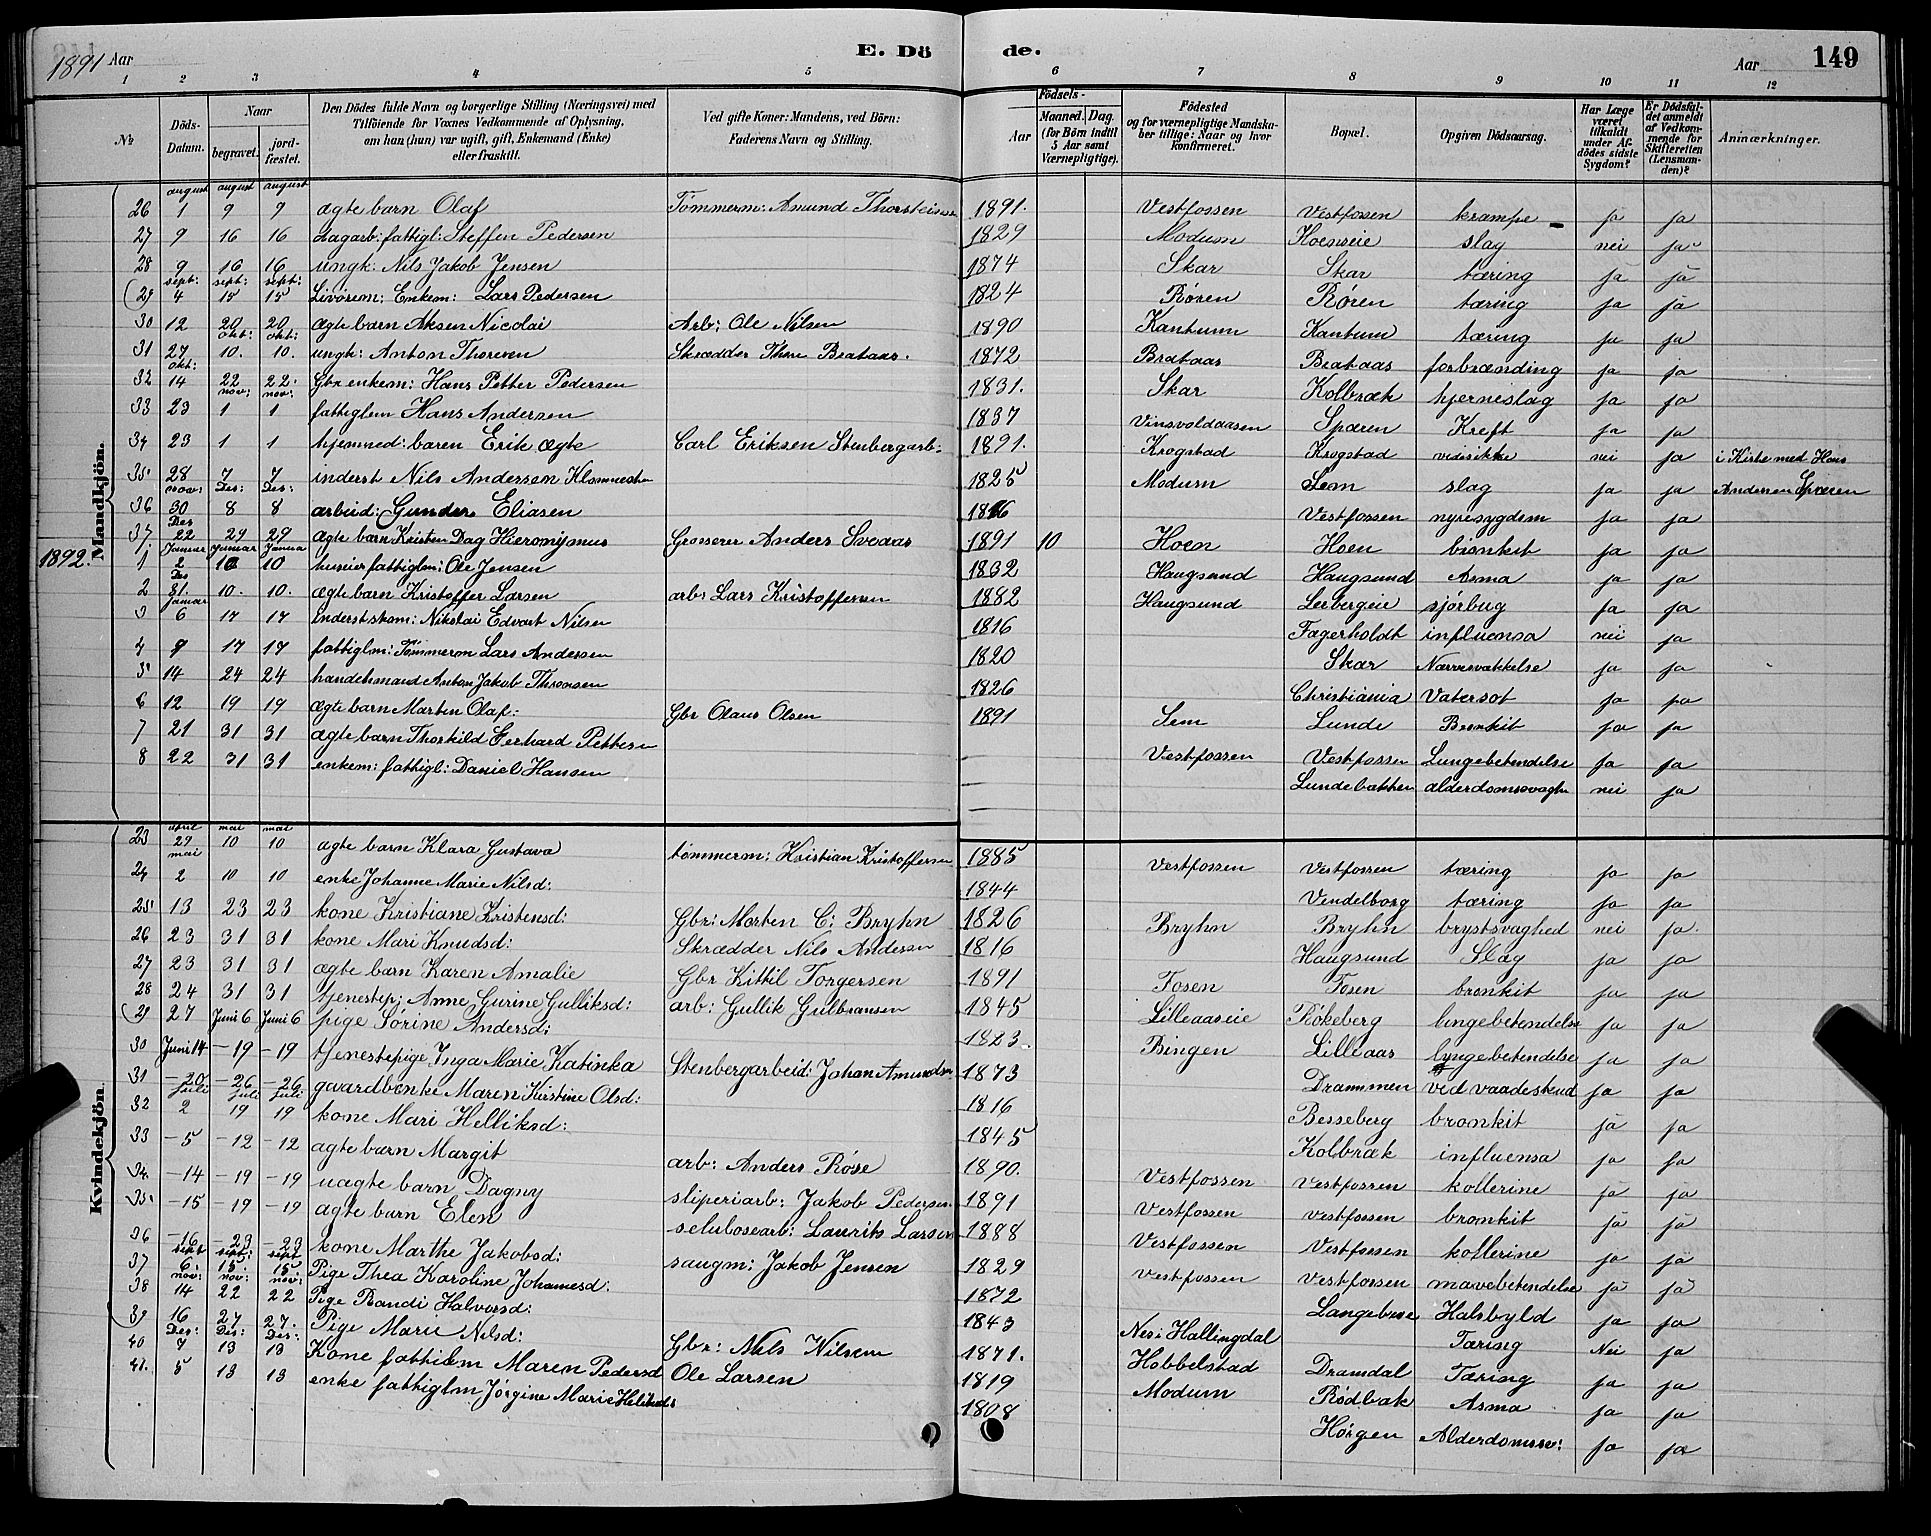 1891 Aar E. Dö de. Aar 149
1 2 3 4 5 6 7 8 9 10 11 12
№ Döds-Datum. Naar begravet. jord-fæstet. Den Dödes fulde Navn og borgerlige Stilling (Næringsvei) med Tilföiende for Voxnes Vedkommende af Oplysning, om han (hun) var ugift, gift, Enkemand (Enke) eller fraskilt. Ved gifte Koner: Mandens, ved Börn: Faderens Navn og Stilling. Födsels- Aar Maaned. Dag. (for Börn indtil 5 Aar samt Værnepligtige). Födested og for værnepligtige Mandskaber tillige: Naar og hvor konfirmeret. Bopæl. Opgiven Dödsaarsag. Har Læge været tilkaldt under Afdödes sidste Sygdom? Er Dödsfaldet anmeldt af Vedkommende for Skifteretten (Lensmanden)? Anmærkninger.
Mandkjön.
august august august
26 1 9 9 ægte barn Olaf Tømmerm: Amund Thorsteinsen 1891. Vestfossen Vestfossen krampe ja ja
27 9 16 16 dagarb: fattigl: Steffen Pedersen 1829 Modum Hoenseie slag nei ja
28 9 16 16 ungk: Nils Jakob Jensen 1874 Skar Skar tæring ja ja
sept: sept: sept:
29 4 15 15 Livörem: Enkem: Lars Pedersen 1824 Røren Røren tæring ja ja
30 12 20 20 ægte barn Aksen Nicolai Arb: Ole Nilsen 1890 Kantum Kantum tæring ja ja
okt: okt:
31 27 10. 10. ungk: Anton Thoresen Skrædder Thore Brataas. 1872 Brataas Brataas forbrænding ja ja
okt:
32 14 22 22 Gbr enkem: Hans Petter Pedersen 1831. Skar Kolbræk hjerneslag ja ja
nov: nov:
33 23 1 1 fattiglem Hans Andersen 1837 Vinsvoldaasen Spæren Kreft ja ja
34 23 1 1 hjemmed: baren Erik ægte Carl Eriksen Stenbergarb: 1891. Krogstad Krogstad vides ikke nei ja i Kirke med Hans
35 28 7 7 inderst Nils Andersen 1825 Modum Sem slag ja ja Andersen Spæren
nov: Des: Des:
36 30 8 8 arbeid: Gunder Eliasen Vestfossen nyresygdom ja ja
Des
37 22 29 29 ægte barn Kristen Dag Hieronymus Grosserer Anders Sveaas 1891 10 Hoen Hoen bronkit ja ja
1892. Januar Januar Janua
1 2 10 10 husier fattiglm: Ole Jensen 1832 Haugsund Haugsund Asma ja ja
Des
2 31. 10. 10. ægte barn Kristoffer Larsen arb: Lars Kristoffersen 1882 Haugsund Lerbergeie sjørbug ja ja
Januar
3 6 17 17 Inderst skom: Nikolai Edvart Nilsen 1816 Fagerholdt influensa nei ja
4 9 17 17 fattiglm: Tømmerm Lars Andersen 1820 Skar Nærvesvækkelse ja ja
5 14 24 24 handelsmand Anton Jakob Thronsen 1826 Christiania Vatersot ja ja
6 12 19 19 ægte barn Marten Olaf: Gbr Olaus Olsen 1891 Sem Lunde Bronkit ja ja
7 21 31 31 ægte barn Thorkild Gerhard Pettersen Vestfossen Vestfossen Lungebetendelse ja ja
8 22 31 31 enkem: fattigl: Daniel Hansen Lundebakken alderdomssvaghe nei ja
Kvindekjön
april mai mai
23 29 10 10 ægte barn Klara Gustava tømmerm: Kristian Kristoffersen 1885 Vestfossen Vestfossen tæring ja ja
mai
24 2 10 10 enke Johanne Marie Nilsd: 1844 Vendelborg tæring ja ja
25 13 23 23 kone Kristiane Kristensd: Gbr: Morten C: Bryhn 1826 Bryhn Bryhn brystsvaghed nei ja
26 23 31 31 kone Mari Knudsd: Skrædder Nils Andersen 1816 Haugsund Slag ja ja
27 23 31 31 ægte barn Karen Amalie Gbr Kittil Torgersen 1891 Fosen Fosen bronkit ja ja
28 24 31 31 tjenestep: Anne Gurine Gulliksd: arb: Gullik Gulbransen 1845 Lilleaaseie Røkeberg lungebetendelse ja ja
29 27 Juni 6 Juni 6 pige Sørine Andersd: 1823. Bingen Lilleaas lungebetendelse ja ja
30 Juni 14 – 19 – 19 tjenestepige Inga Marie Katinka Stenbergarbeid: Johan Amundsen 1873 Drammen ved vaadeskud ja ja
31 – 20 – 26 – 26 gaardbenke Maren Kirstine Olsd: 1816 Besseberg bronkit ja ja
juli juli juli
32 2 19 19 kone Mari Helliksd: 1845 Kolbræk influensa ja ja
33 – 5 – 12 – 12 ægte barn Margit arb: Anders Røse 1890. Vestfossen Vestfossen kollerine ja ja
34 – 14 – 19 – 19 uægte barn Dagny sliperiarb: Jakob Pedersen 1891 Vestfossen Vestfossen bronkit ja ja
35 – 15 – 19 – 19 ægte barn Elen selulosearb: Laurits Larsen 1888 Vestfossen Vestfossen kollerine ja ja
36 – 16 – 23 – 23 kone Marthe Jakobsd: saugm: Jakob Jensen 1829 Vestfossen Vestfossen mavebetendelse ja ja
sept sept: sept
37 6 15 15 Pige Thea Karoline Johannesd: 1872 Langebrue Halsbyld ja ja
nov: nov: nov:
38 14 22 22 Pige Randi Halvorsd: 1843 Nes i Hallingdal Tæring Nei ja
39 16 27 27. Pige Marie Nilsd: Gbr: Nils Nilsen 1871. Hobbelstad Dramdal Tæring ja ja
Des: Des: Des:
40 7 13 13 Kone fattiglem Maren Pedersd Ole Larsen 1819 Modum Rødbæk Asma ja ja
41. 5 13 13 enke fattiglm Jørgine Marie 1808 Hørgen Alderdomssv: ja ja